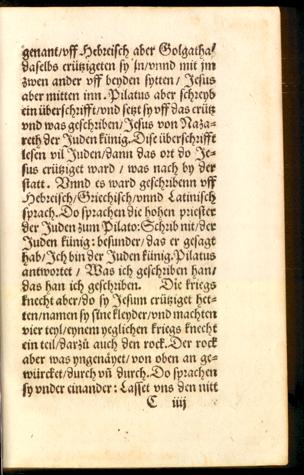 genant/vff Hebreisch aber Golgatha/
daselbs crützigeten sy jn/vnnd mit jm
zwen ander vff beyden sytten/ Jesus
aber mitten inn. Pilatus aber schreyb
ein überschrifft/vnd setzt sy vff das crütz
vnd was geschriben/Jesus von Naza-
reth der Juden künig. Dise überschrifft
lesen vil Juden/dann das ort do Je-
sus crütziget ward / was nach by der
statt. Vnnd es ward geschribenn vff
Hebreisch/Griechisch/vnnd Latinisch
sprach. Do sprachen die hohen priester
der Juden zum Pilato: Schrib nit/der
Juden künig: besunder/das er gesagt
hab/Ich bin der Juden künig. Pilatus
antwortet / Was ich geschriben han/
das han ich geschriben. Die kriegs
knecht aber/do sy Jesum crütziget het-
ten/namen sy sine kleyder/vnd machten
vier teyl/eynem yeglichen kriegs knecht
ein teil/darzů auch den rock. Der rock
aber was vngenäyet/von oben an ge-
würcket/durch vn̄ durch. Do sprachen
sy vnder einander: Lasset vns den nitt
C iiij